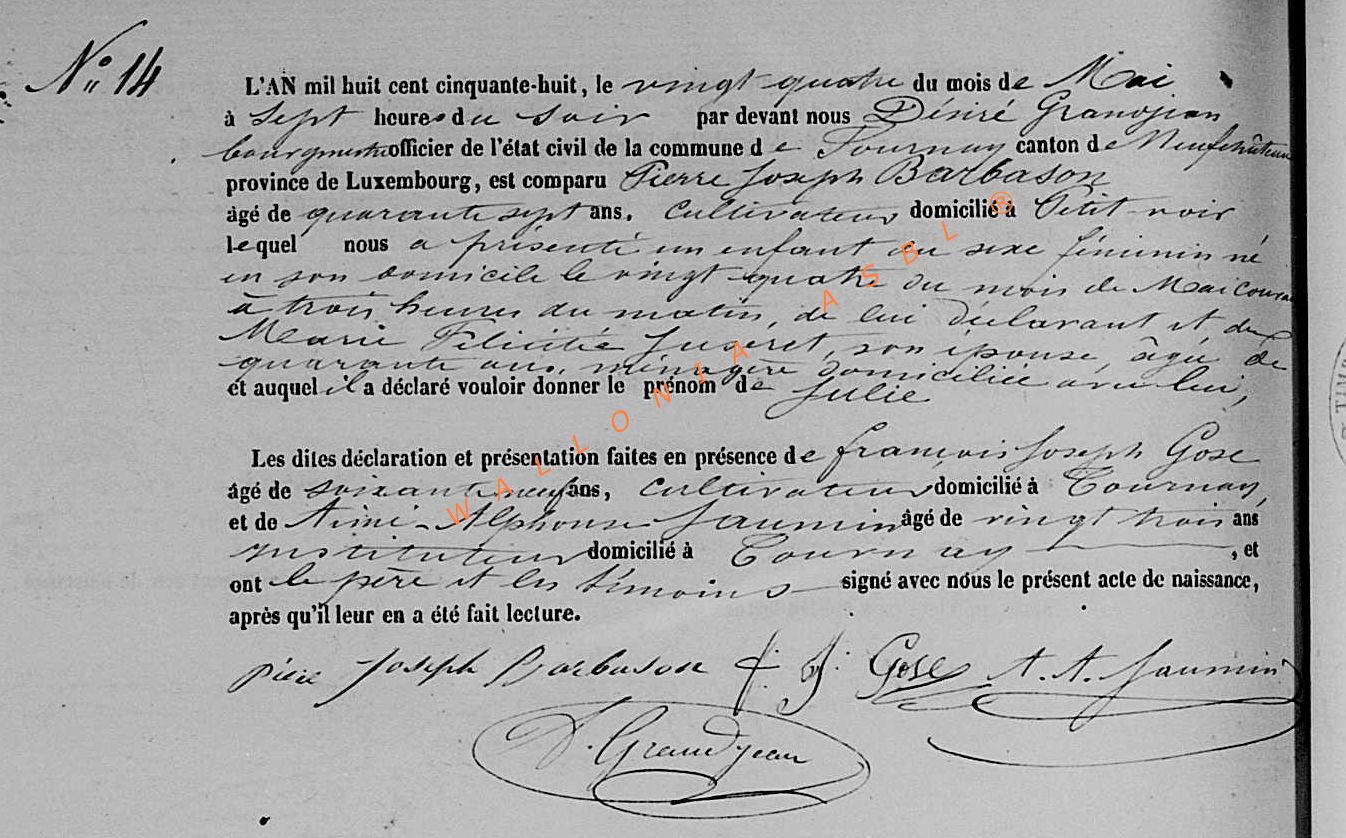 N° 14
L'AN mil huit cent cinquante-huit, le vingt quatre du mois de Mai
à Sept heures du soir par devant nous Désiré Grandjean
bourgmestre officier de l'état civil de la commune de Tournay canton de Neufchâteau
province de Luxembourg, est comparu Pierre Joseph Barbason
âgé de quarante sept ans, cultivateur domicilié à Petit-voir
lequel nous a présenté un enfant du sexe féminin né
en son domicile le vingt quatre du mois de Mai courant
à trois heures du matin, de lui déclarant et de
Marie Félicité Juseret, son épouse âgée de
quarante ans, ménagère domiciliée avec lui,
et auquel il a déclaré vouloir donner le prénom de Julie
Les dites déclaration et présentation faites en présence de françois Joseph Gose
âgé de soixante neuf ans, cultivateur domicilié à Tournay,
et de Aimé-Alphonse Jaumin âgé de vingt trois ans
instituteur domicilié à Tournay , et
ont le père et les témoins signé avec nous le présent acte de naissance,
après qu'il leur en a été fait lecture.
piere Joseph Barbason f: J: Gose A. A. Jaumin
D. Grandjean
WALLONIA ASBL ®
TIMB